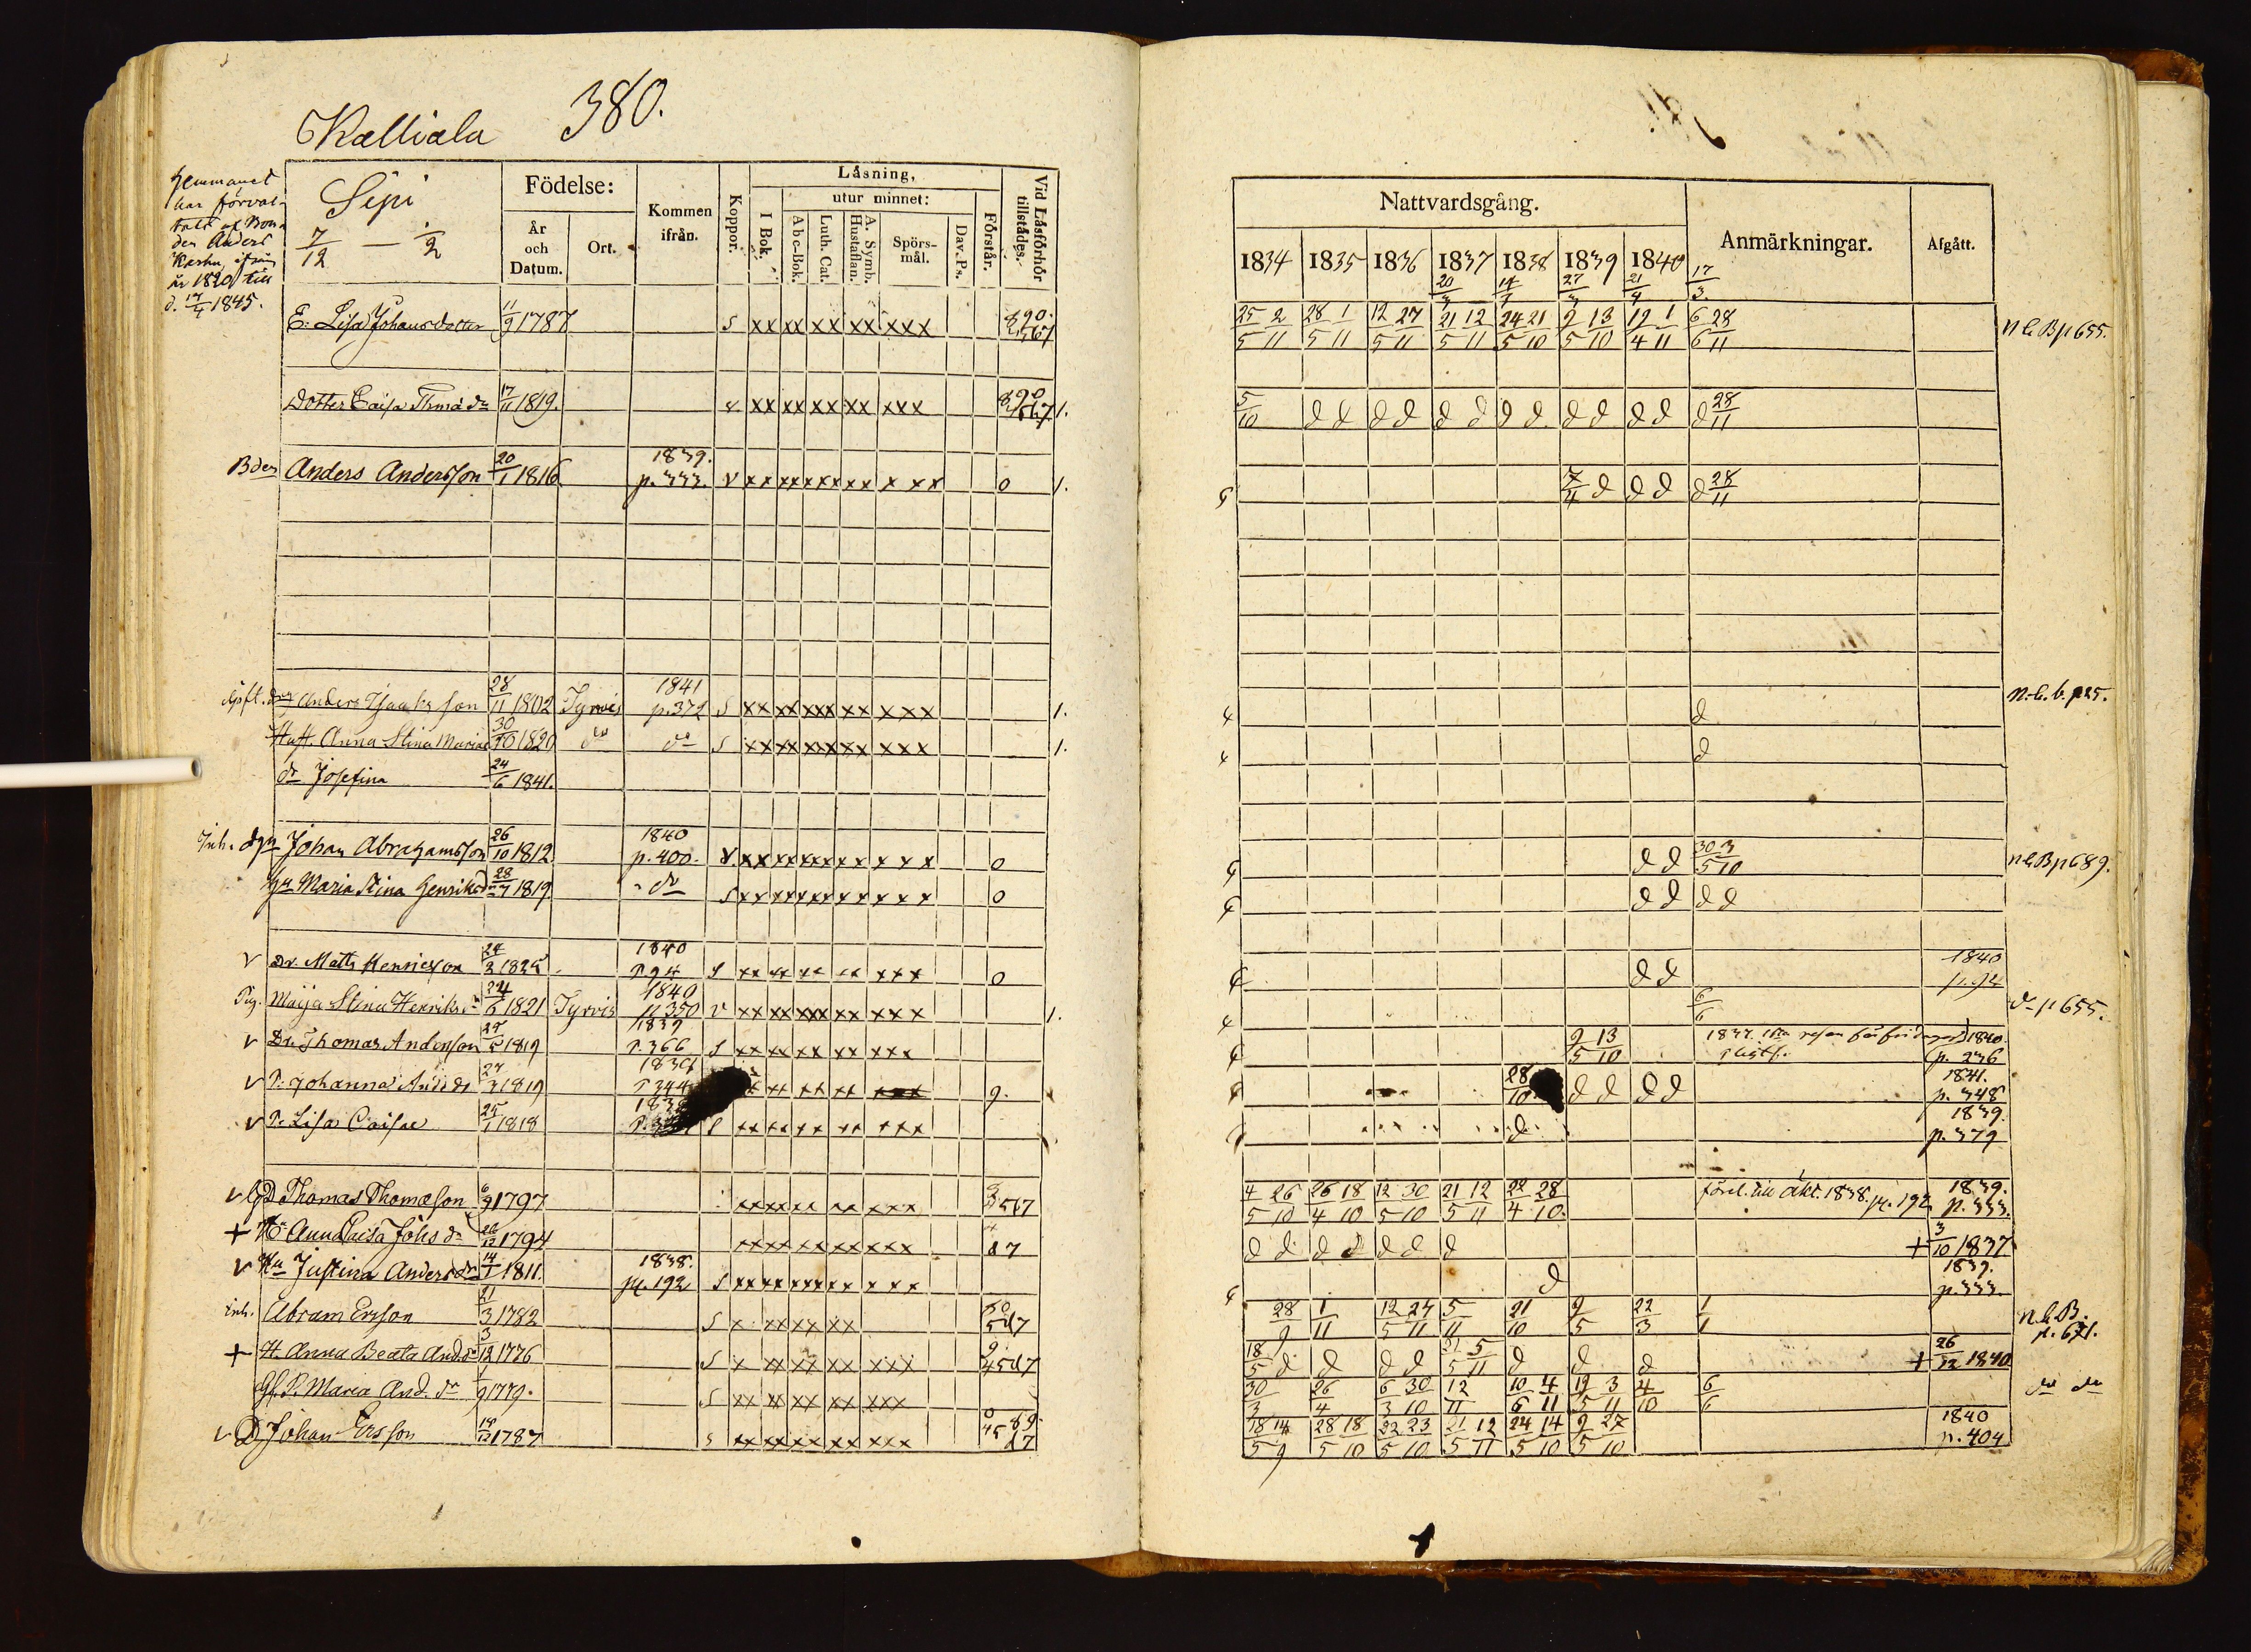 Kalliala 380.
Hemmanet
har förval-
tats af Bon-
den Anders
år 1820 till
d. 17/4 1845.
Sipi
7/12 — 1/2
Födelse:
År
och
Datum.
Ort.
Kommen
ifrån.
Koppor.
Läsning,
utur minnet:
I Bok.
Abc-Bok.
Luth. Cat.
A. Symb.
Hustaflan.
Spörs-
mål.
Dav. Ps.
Förstår.
Vid Läsförhör
tillstädes.
E. Lisa Johansdotter 11/9 1787 S xx xx xx xx xxx
Dotter Caisa Thma dr 17/11 1819. v. xx xx xx xx xxx 1.
Bden Anders Andersson 20/1 1816 1839. p. 333. v xx xx xx xx xxx 0 1.
Anders Isaaksson 28/11 1802 Tyrvis 1841 p. 372 S xx xx xxx xx xxx 1.
Hust. Anna Stina Maria 30/10 1820 do do S xx xx xxx xx xxx 1.
dr Josefina 24/6 1841.
Inh. Johan Abrahamsson 26/10 1812 1840 p. 400. v xx xx xxx xx xxx 0
Hu Maria Stina Henriksdr 28/7 1819 do S xx xx xx xx xxx 0
v Dr. Matts Henricsson 24/2 1825 1840 p. 94 S xx xx xx xx xxx 0
Pig. Maija Stina Henriks dr 24/6 1821 Tyrvis 1840 p. 350 v xx xx xxx xx xxx 1.
v Dr. Thomas Andersson 25/5 1819 1839 p. 366 S xx xx xx xx xxx
v P. Johanna And: dr 27/3 1819 p. 344 xx xx xx xxx 9.
v P. Lisa Caisa 25/1 1818 S xx xx xx xx xxx
v Thomas Thomasson 6/9 1797 xx xx xx xx xxx 567
+ Hu Anna Caisa Johs dr 20/12 1794 xx xx xx xx xxx 87
v Hu Justina Anders dr 14/1 1811. 1838. p. 192 S xx xx xx xx xxx
inh. Abram Ersson 21/3 1782 S x xx xx xx 567
+ H. Anna Beata And. dr 3/12 1776 S x xx xx xx xxx 4567
P. Maria And. dr 1/9 1779. S xx xx xx xx xxx
v D Johan Ersson 1787 S xx xx xx xx xxx
Nattvardsgång.
Anmärkningar.
Afgått.
1834 1835 1836 1837 1838 1839 1840
20/3 14/7 27/3 21/4 17/3
25/5 2/11 28/5 1/11 12/5 27/11 21/5 12/11 24/5 21/10 9/5 13/10 12/4 1/11 6/6 28/11 n.l.B p 655.
5/10 d d d d d d d d d d d d d 28/11
7/4 d d d d 28/11
d n.l.b. p 25.
d
d d 30/5 3/10 n.l.B p 689.
d d d d
d d 1840 p. 94
6/6 do p 655.
9/5 13/10 1840. p. 236
28/10 d d d d 1841. p. 348
d 1839. p. 379
4/5 26/10 26/4 18/10 12/5 30/10 21/5 12/11 22/4 28/10. förel. till äkt. 1838. p. 192 1839. p. 333.
d d d d d d d + 3/10 1837
d 1839. p. 333.
28/9 1/11 12/5 27/11 5/11 21/10 9/5 22/3 1/1 n.l.B. p. 671.
18/5 d d d d 5/11 d d d + 26/12 1840
30/3 26/4 6/3 30/10 12/11 10/6 4/11 19/5 3/11 4/10 6/6 do do
18/5 14/9 28/5 18/10 22/5 23/10 21/5 12/11 24/5 14/10 9/5 27/10 1840 p. 404